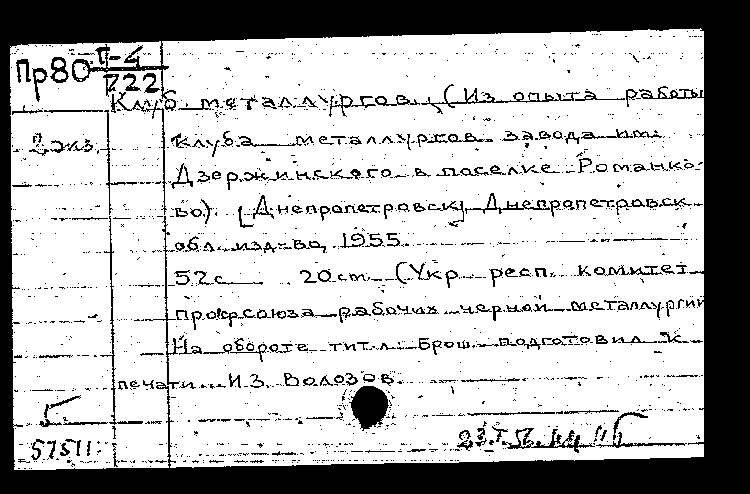 Пр80 П-4
722
Клуб металлургов. (Из опыта работы
2 экз. клуба металлургов завода им.
Дзержинского в поселке Романко-
во). [Днепропетровск] Днепропетровск.
обл. изд-во, 1955.
52 с. 20 см. (Укр. респ. комитет
профсоюза рабочих черной металлургии
На обороте тит. л. Брош. подготовил к
печати И.З. Волозов.
5.
57511.